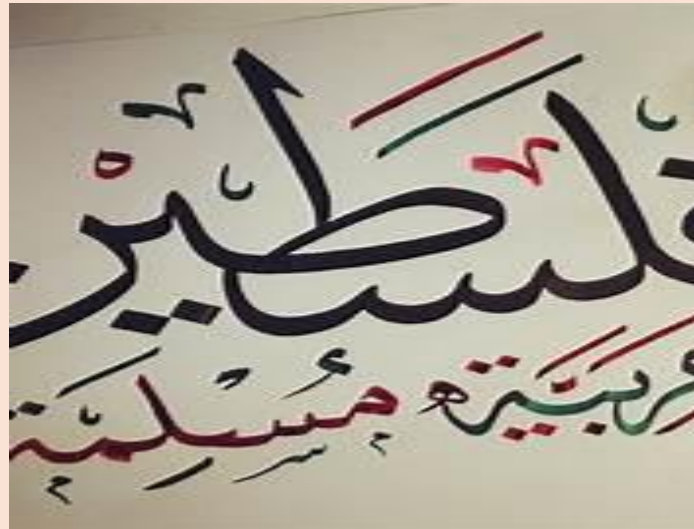 فلسطين
عربية مسلمة